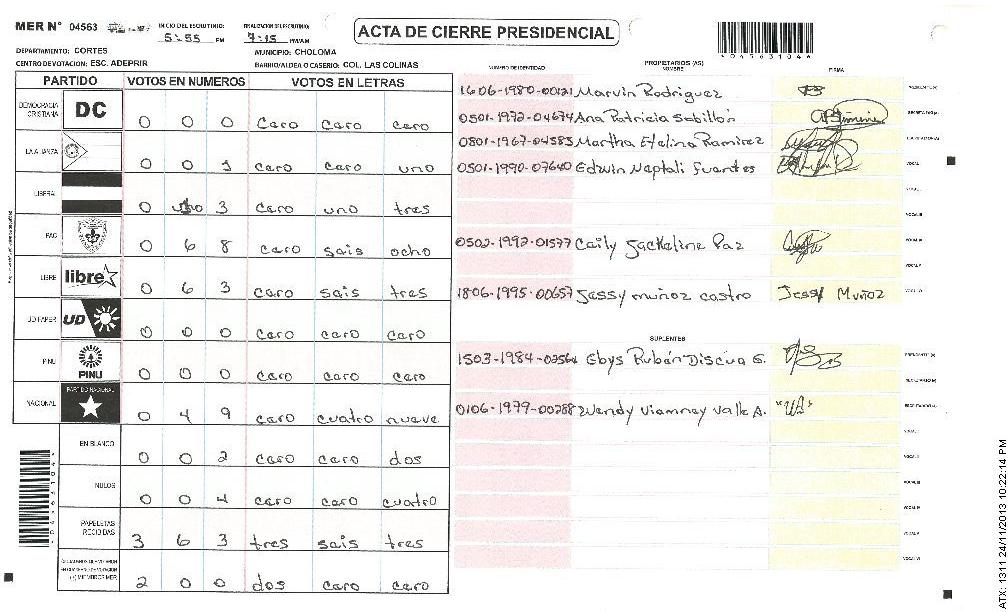 MER N° 04563
INICIO DEL ESCRUTINIO: 5:55 PM
FINALIZACION DE ESCRUTINIO: 7:15 PM/AM
ACTA DE CIERRE PRESIDENCIAL
DEPARTAMENTO: CORTES
MUNICIPIO: CHOLOMA
CENTRO DE VOTACION: ESC. ADEPRIR
BARRIO/ALDEA O CASERIO: COL. LAS COLINAS
PARTIDO VOTOS EN NUMEROS VOTOS EN LETRAS
DEMOCRACIA CRISTIANA DC 0 0 0 caro caro caro
LA ALIANZA 0 0 1 caro caro uno
LIBERAL 0 3 caro uno tres
PAC 0 6 8 caro sais ocho
LIBRE libre 0 6 3 caro sais tres
UD-FAPER UD 0 0 0 caro caro caro
PINU PINU 0 0 0 caro caro caro
NACIONAL PARTIDO NACIONAL 0 4 9 caro cuatro nueve
EN BLANCO 0 0 2 caro caro dos
NULOS 0 0 4 caro caro cuatro
PAPELETAS RECIBIDAS 3 6 3 tres sais tres
(+) MIEMBROS MER 2 0 0 dos caro caro
NUMERO DE IDENTIDAD PROPIETARIOS (AS) NOMBRE FIRMA
1606-1980-00121 Marvin Rodriguez
0501-1972-04674 Ana Patricia Sabillón
0801-1967-04585 Martha Evelina Ramirez
0501-1990-07640 Edwin Neptali fuentes
0502-1992-01577 Caily Jackeline Paz
1806-1995-00657 Jessy muñoz castro Jessy Muñoz
SUPLENTES
1503-1984-02564 Ebys Rubán Discua S.
0106-1979-00288 Wendy Viamney Valle A.
045631044
ATX: 1311 24/11/2013 10:22:14 PM